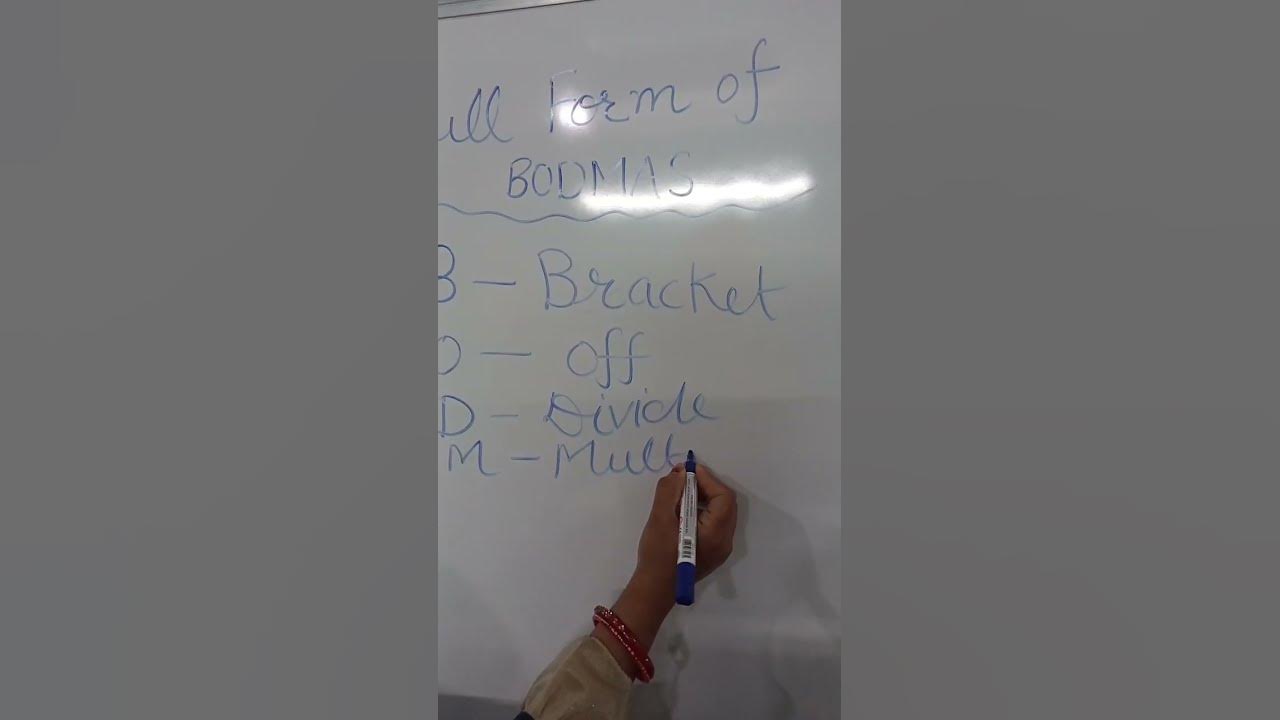 ull Form of
BODMAS
B - Bracket
O - off
D - Divide
M - Mult